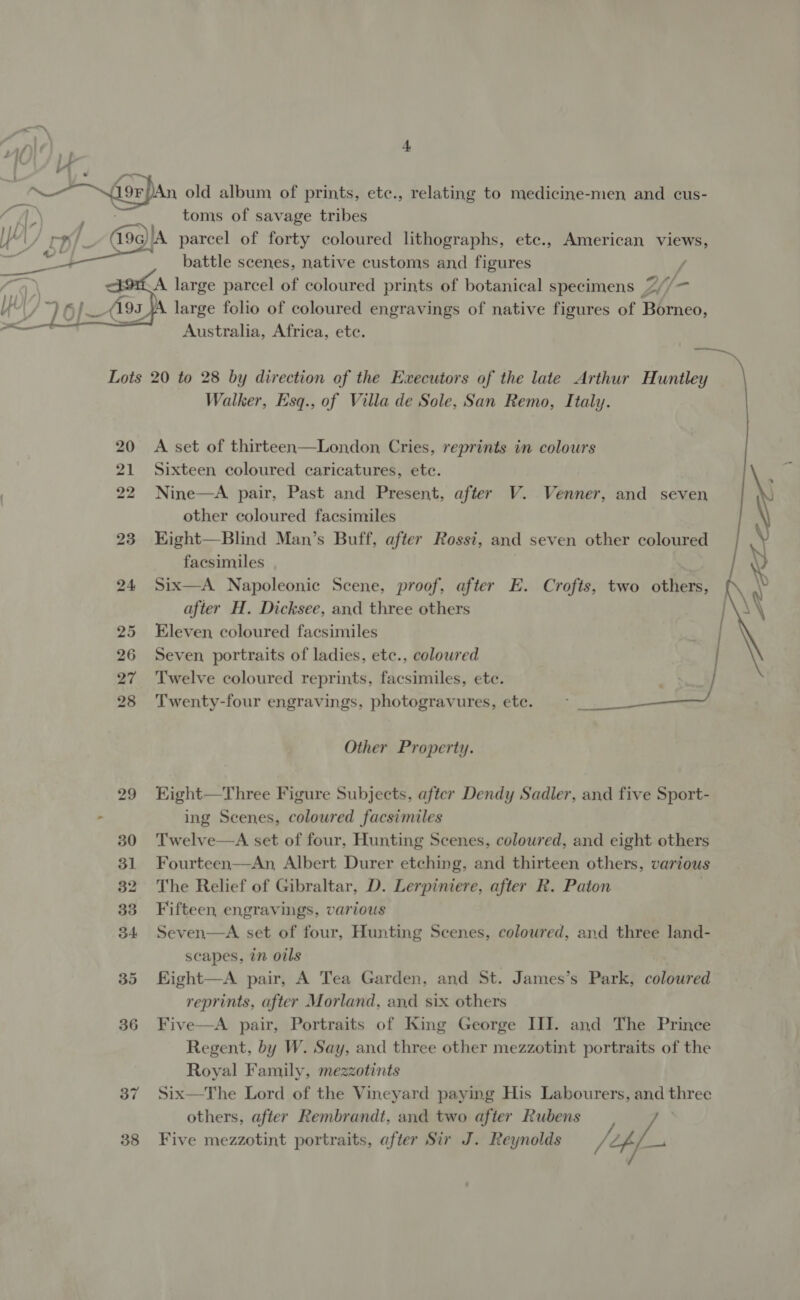 4
19F An old album of prints, etc., relating to medicine-men and cus-
toms of savage tribes
19G A parcel of forty coloured lithographs, etc., American views,
battle scenes, native customs and figures
A large parcel of coloured prints of botanical specimens
19J A large folio of coloured engravings of native figures of Borneo,
Australia, Africa, etc.
Lots 20 to 28 by direction of the Executors of the late Arthur Huntley
Walker, Esq., of Villa de Sole, San Remo, Italy.
20 A set of thirteen—London Cries, reprints in colours
21 Sixteen coloured caricatures, etc.
22 Nine—A pair, Past and Present, after V. Venner, and seven
other coloured facsimiles
23 Eight—Blind Man's Buff, after Rossi, and seven other coloured
facsimiles
24 Six—A Napoleonic Scene, proof, after E. Crofts, two others,
after H. Dicksee, and three others
25 Eleven coloured facsimiles
26 Seven portraits of ladies, etc., coloured
27 Twelve coloured reprints, facsimiles, etc.
28 Twenty-four engravings, photogravures, etc.
Other Property.
29 Eight—Three Figure Subjects, after Dendy Sadler, and five Sport-
ing Scenes, coloured facsimiles
30 Twelve—A set of four, Hunting Scenes, coloured, and eight others
31 Fourteen—An Albert Durer etching, and thirteen others, various
32 The Relief of Gibraltar, D. Lerpiniere, after R. Paton
33 Fifteen engravings, various
34 Seven—A set of four, Hunting Scenes, coloured, and three land-
scapes, in oils
35 Eight—A pair, A Tea Garden, and St. James's Park, coloured
reprints, after Morland, and six others
36 Five—A pair, Portraits of King George III. and The Prince
Regent, by W. Say, and three other mezzotint portraits of the
Royal Family, mezzotints
37 Six—The Lord of the Vineyard paying His Labourers, and three
others, after Rembrandt, and two after Rubens
38 Five mezzotint portraits, after Sir J. Reynolds